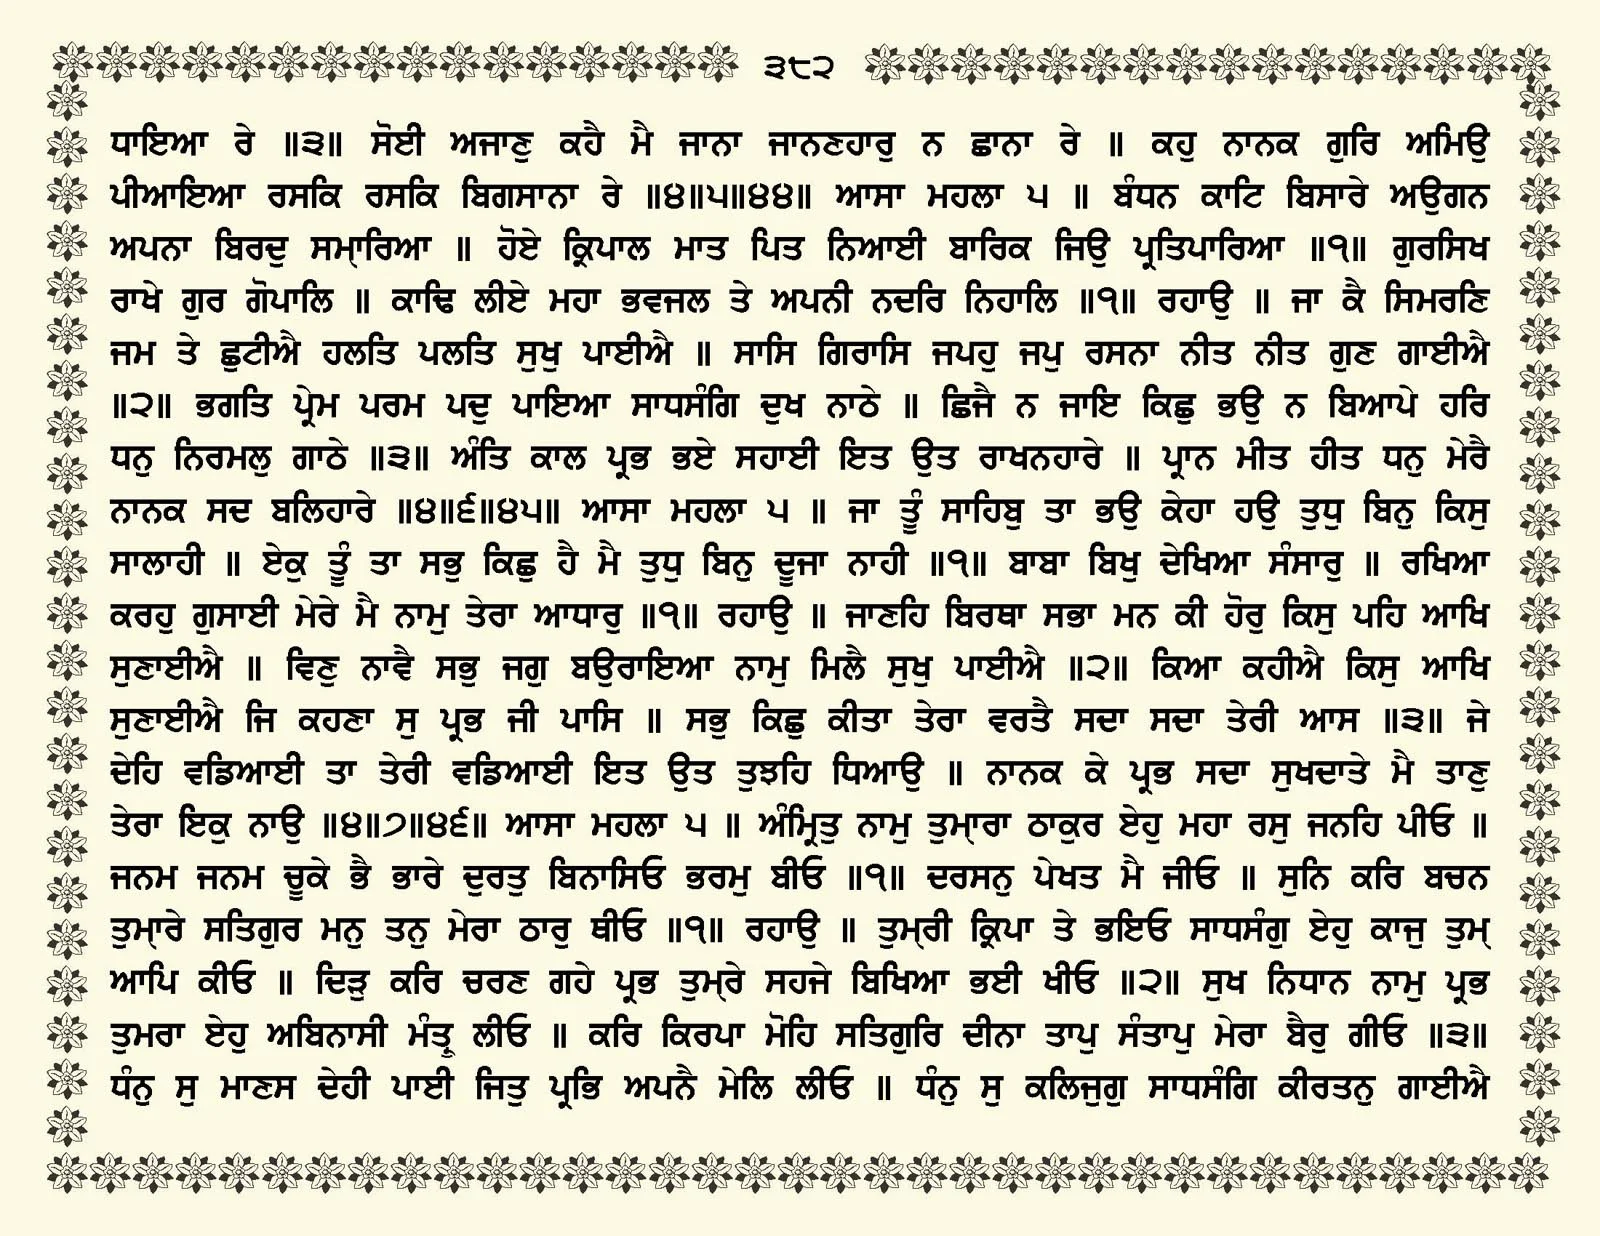 ੩੮੨
ਧਾਇਆ ਰੇ ॥੩॥ ਸੋਈ ਅਜਾਣੁ ਕਹੈ ਮੈ ਜਾਨਾ ਜਾਨਣਹਾਰੁ ਨ ਛਾਨਾ ਰੇ ॥ ਕਹੁ ਨਾਨਕ ਗੁਰਿ ਅਮਿਉ
ਪੀਆਇਆ ਰਸਕਿ ਰਸਕਿ ਬਿਗਸਾਨਾ ਰੇ ॥੪॥੫॥੪੪॥ ਆਸਾ ਮਹਲਾ ੫ ॥ ਬੰਧਨ ਕਾਟਿ ਬਿਸਾਰੇ ਅਉਗਨ
ਅਪਨਾ ਬਿਰਦੁ ਸਮ੍ਹਾਰਿਆ ॥ ਹੋਏ ਕ੍ਰਿਪਾਲ ਮਾਤ ਪਿਤ ਨਿਆਈ ਬਾਰਿਕ ਜਿਉ ਪ੍ਰਤਿਪਾਰਿਆ ॥੧॥ ਗੁਰਸਿਖ
ਰਾਖੇ ਗੁਰ ਗੋਪਾਲਿ ॥ ਕਾਢਿ ਲੀਏ ਮਹਾ ਭਵਜਲ ਤੇ ਅਪਨੀ ਨਦਰਿ ਨਿਹਾਲਿ ॥੧॥ ਰਹਾਉ ॥ ਜਾ ਕੈ ਸਿਮਰਣਿ
ਜਮ ਤੇ ਛੁਟੀਐ ਹਲਤਿ ਪਲਤਿ ਸੁਖੁ ਪਾਈਐ ॥ ਸਾਸਿ ਗਿਰਾਸਿ ਜਪਹੁ ਜਪੁ ਰਸਨਾ ਨੀਤ ਨੀਤ ਗੁਣ ਗਾਈਐ
॥੨॥ ਭਗਤਿ ਪ੍ਰੇਮ ਪਰਮ ਪਦੁ ਪਾਇਆ ਸਾਧਸੰਗਿ ਦੁਖ ਨਾਠੇ ॥ ਛਿਜੈ ਨ ਜਾਇ ਕਿਛੁ ਭਉ ਨ ਬਿਆਪੇ ਹਰਿ
ਧਨੁ ਨਿਰਮਲੁ ਗਾਠੇ ॥੩॥ ਅੰਤਿ ਕਾਲ ਪ੍ਰਭ ਭਏ ਸਹਾਈ ਇਤ ਉਤ ਰਾਖਨਹਾਰੇ ॥ ਪ੍ਰਾਨ ਮੀਤ ਹੀਤ ਧਨੁ ਮੇਰੈ
ਨਾਨਕ ਸਦ ਬਲਿਹਾਰੇ ॥੪॥੬॥੪੫॥ ਆਸਾ ਮਹਲਾ ੫ ॥ ਜਾ ਤੂੰ ਸਾਹਿਬੁ ਤਾ ਭਉ ਕੇਹਾ ਹਉ ਤੁਧੁ ਬਿਨੁ ਕਿਸੁ
ਸਾਲਾਹੀ ॥ ਏਕੁ ਤੂੰ ਤਾ ਸਭੁ ਕਿਛੁ ਹੈ ਮੈ ਤੁਧੁ ਬਿਨੁ ਦੂਜਾ ਨਾਹੀ ॥੧॥ ਬਾਬਾ ਬਿਖੁ ਦੇਖਿਆ ਸੰਸਾਰੁ ॥ ਰਖਿਆ
ਕਰਹੁ ਗੁਸਾਈ ਮੇਰੇ ਮੈ ਨਾਮੁ ਤੇਰਾ ਆਧਾਰੁ ॥੧॥ ਰਹਾਉ ॥ ਜਾਣਹਿ ਬਿਰਥਾ ਸਭਾ ਮਨ ਕੀ ਹੋਰੁ ਕਿਸੁ ਪਹਿ ਆਖਿ
ਸੁਣਾਈਐ ॥ ਵਿਣੁ ਨਾਵੈ ਸਭੁ ਜਗੁ ਬਉਰਾਇਆ ਨਾਮੁ ਮਿਲੈ ਸੁਖੁ ਪਾਈਐ ॥੨॥ ਕਿਆ ਕਹੀਐ ਕਿਸੁ ਆਖਿ
ਸੁਣਾਈਐ ਜਿ ਕਹਣਾ ਸੁ ਪ੍ਰਭ ਜੀ ਪਾਸਿ ॥ ਸਭੁ ਕਿਛੁ ਕੀਤਾ ਤੇਰਾ ਵਰਤੈ ਸਦਾ ਸਦਾ ਤੇਰੀ ਆਸ ॥੩॥ ਜੇ
ਦੇਹਿ ਵਡਿਆਈ ਤਾ ਤੇਰੀ ਵਡਿਆਈ ਇਤ ਉਤ ਤੁਝਹਿ ਧਿਆਉ ॥ ਨਾਨਕ ਕੇ ਪ੍ਰਭ ਸਦਾ ਸੁਖਦਾਤੇ ਮੈ ਤਾਣੁ
ਤੇਰਾ ਇਕੁ ਨਾਉ ॥੪॥੭॥੪੬॥ ਆਸਾ ਮਹਲਾ ੫ ॥ ਅੰਮ੍ਰਿਤੁ ਨਾਮੁ ਤੁਮ੍ਹਾਰਾ ਠਾਕੁਰ ਏਹੁ ਮਹਾ ਰਸੁ ਜਨਹਿ ਪੀਓ ॥
ਜਨਮ ਜਨਮ ਚੂਕੇ ਭੈ ਭਾਰੇ ਦੁਰਤੁ ਬਿਨਾਸਿਓ ਭਰਮੁ ਬੀਓ ॥੧॥ ਦਰਸਨੁ ਪੇਖਤ ਮੈ ਜੀਓ ॥ ਸੁਨਿ ਕਰਿ ਬਚਨ
ਤੁਮ੍ਹਾਰੇ ਸਤਿਗੁਰ ਮਨੁ ਤਨੁ ਮੇਰਾ ਠਾਰੁ ਥੀਓ ॥੧॥ ਰਹਾਉ ॥ ਤੁਮ੍ਹਰੀ ਕ੍ਰਿਪਾ ਤੇ ਭਇਓ ਸਾਧਸੰਗੁ ਏਹੁ ਕਾਜੁ ਤੁਮ੍ਹ
ਆਪਿ ਕੀਓ ॥ ਦਿੜੁ ਕਰਿ ਚਰਣ ਗਹੇ ਪ੍ਰਭ ਤੁਮ੍ਹਰੇ ਸਹਜੇ ਬਿਖਿਆ ਭਈ ਖੀਓ ॥੨॥ ਸੁਖ ਨਿਧਾਨ ਨਾਮੁ ਪ੍ਰਭ
ਤੁਮਰਾ ਏਹੁ ਅਬਿਨਾਸੀ ਮੰਤ੍ਰੁ ਲੀਓ ॥ ਕਰਿ ਕਿਰਪਾ ਮੋਹਿ ਸਤਿਗੁਰਿ ਦੀਨਾ ਤਾਪੁ ਸੰਤਾਪੁ ਮੇਰਾ ਬੈਰੁ ਗੀਓ ॥੩॥
ਧੰਨੁ ਸੁ ਮਾਣਸ ਦੇਹੀ ਪਾਈ ਜਿਤੁ ਪ੍ਰਭਿ ਅਪਨੈ ਮੇਲਿ ਲੀਓ ॥ ਧੰਨੁ ਸੁ ਕਲਿਜੁਗੁ ਸਾਧਸੰਗਿ ਕੀਰਤਨੁ ਗਾਈਐ